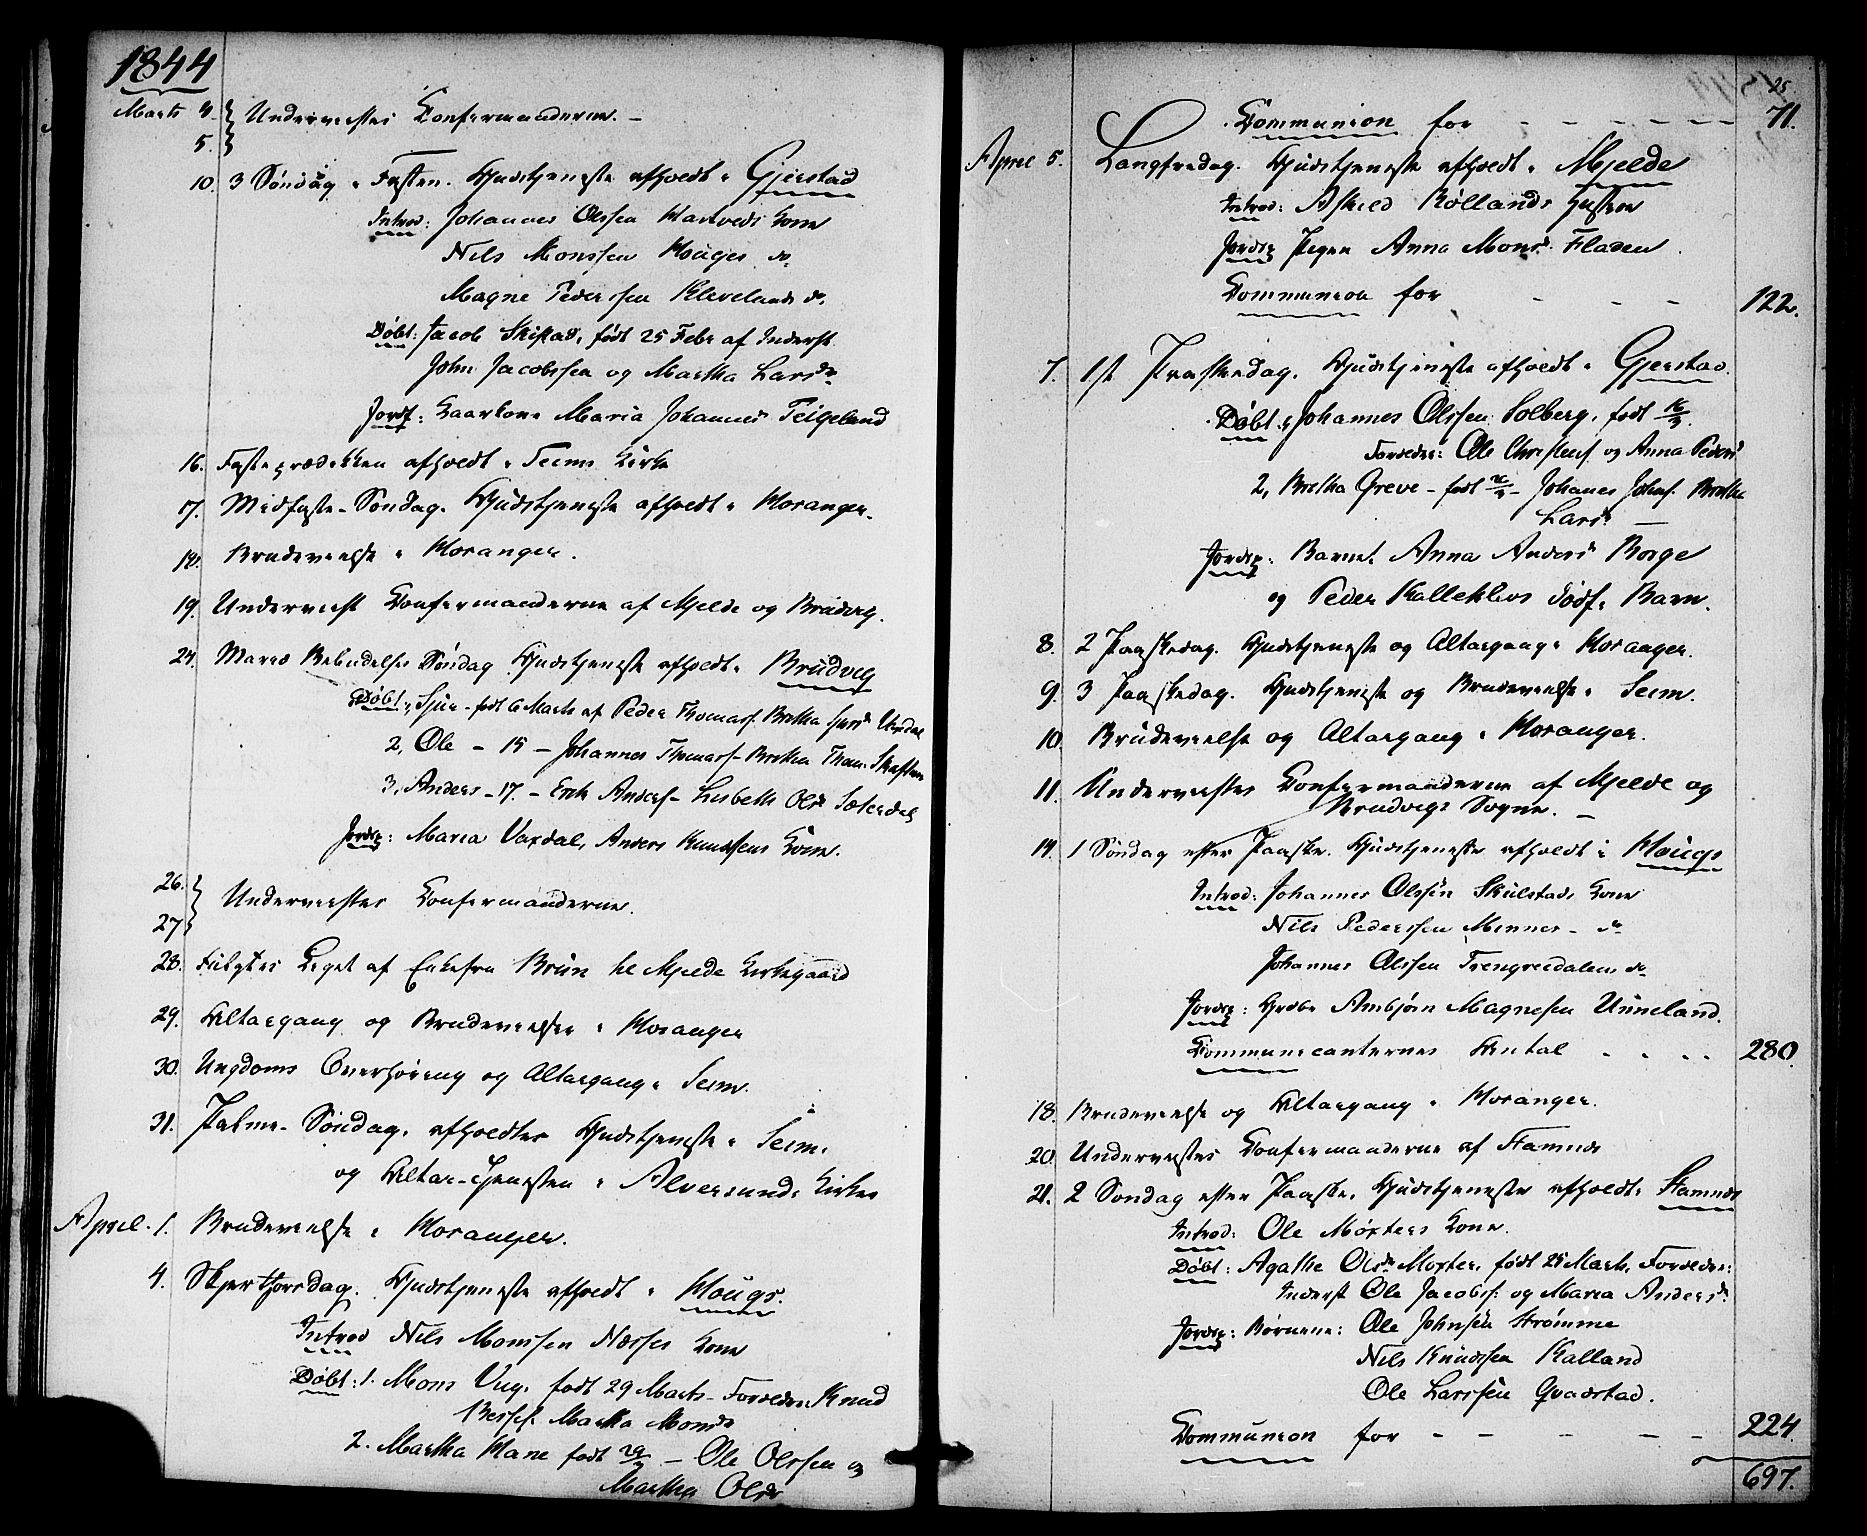 1844
Marts 4. Underviistes Confirmanderne. –
5.
10. 3 Søndag i Fasten. Gudstjeneste afholdt i Gjerstad
Introd: Johannes Olssen Hartveds Kone
Nils Monssen Houges do
Magne Pederssen Klevelands do.
Døbt: Jacob Skistad, født 25 Febr af Inderst
John Jacobssen og Martha Larsdr
Jordf: Kaarkone Maria Johannesdr Teigeland
16. Fasteprædikken afholdt i Seims Kirke
17. Midfaste-Søndag. Gudstjeneste afholdt i Hosanger.
18. Brudevielse i Hosanger.
19. Underviist Confirmanderne af Mjelde og Brudvig.
24. Mariæ Bebudelses Søndag Gudstjeneste afholdt i Brudvig
Døbt: 1, Sjur – født 6 Marts af Peder Thomass. Brithe Sjursdr Vaxdal
2, Ole – 15 – Johannes Thomass – Brithe Thom: Skaftun
3, Anders – 17. – Erik Anderss – Lisbeth Olsdr Sæterdal
Jordf: Maria Vaxdal, Anders Knudssens Kone.
26. Underviistes Confirmanderne.
27
28. Fulgtes Liget af Enkefru Brun til Mjelde Kirkegaard
29. Altargang og Brudevielse i Hosanger
30. Ungdoms Overhøring og Altargang i Seim.
31. Palme-Søndag, afholdtes Gudstjeneste i Seim.
og Altar-Tjenesten i Alversunds Kirke
April. 1. Brudevielse i Hosanger.
4. Skjertorsdag. Gudstjeneste afholdt i Hougs.
Introd Nils Monssen Næsses Kone
Døbt: 1. Mons Vig, født 29 Marts – Forældre: Knud
Martha Monsdr
2. Martha Hane født – Ole Olssen og
Martha Olsdr
25
Communion for – – – – – – 71.
April 5. Langfredag. Gudstjeneste afholdt i Mjelde
Introd: Askild Røllands Hustru
Jordf: Pigen Anna Monsdr Fladen.
Communion for – – – 122.
7. 1st Paaskedag. Gudstjeneste afholdt i Gjerstad.
Døbt: 1, Johannes Olssen Solberg, født 16/3.
Forældre: Ole Christens og Anna Pedersd
2, Brithe Greve – født – Johanes Johns. Brithe
Larsdr –
Jordf: Barnet Anna Andersdr Borge
og Peder Kalleklevs dødf. Barn.
8. 2 Paaskedag. Gudstjeneste og Altargang i Hosanger.
9. 3 Paaskedag. Gudstjeneste og Brudevielse i Seim.
10. Brudevielse og Altargang i Hosanger.
11. Underviistes Confirmanderne af Mjelde og
Brudvigs Sogne. –
14. 1 Søndag efter Paaske. Gudstjeneste afholdt i Hougs
Introd: Johannes Olssen Skulstads Kone
Nils Pederssen Mennes – do
Johannes Olssen Trengreidalens do
Jordf: Gaardbr Ambjørn Magnesen Unneland.
Communicanternes Antal . . . . 280.
18. Brudevielse og Altargang i Hosanger.
20. Underviistes Confirmanderne af Stamnes
21. 2 Søndag efter Paaske. Gudstjeneste afholdt i Stamnes
Introd: Ole Møxters Kone.
Døbt: Agathe Olsdr Moxter, født 25 Marts, Forældre:
Inderst Ole Jacobss: og Maria Andersdr
Jordf: Børnene: Ole Johnsen Strømme
Nils Knudssen Kalland
Ole Larssen Qvadstad.
Communion for – – – – – 224
697.